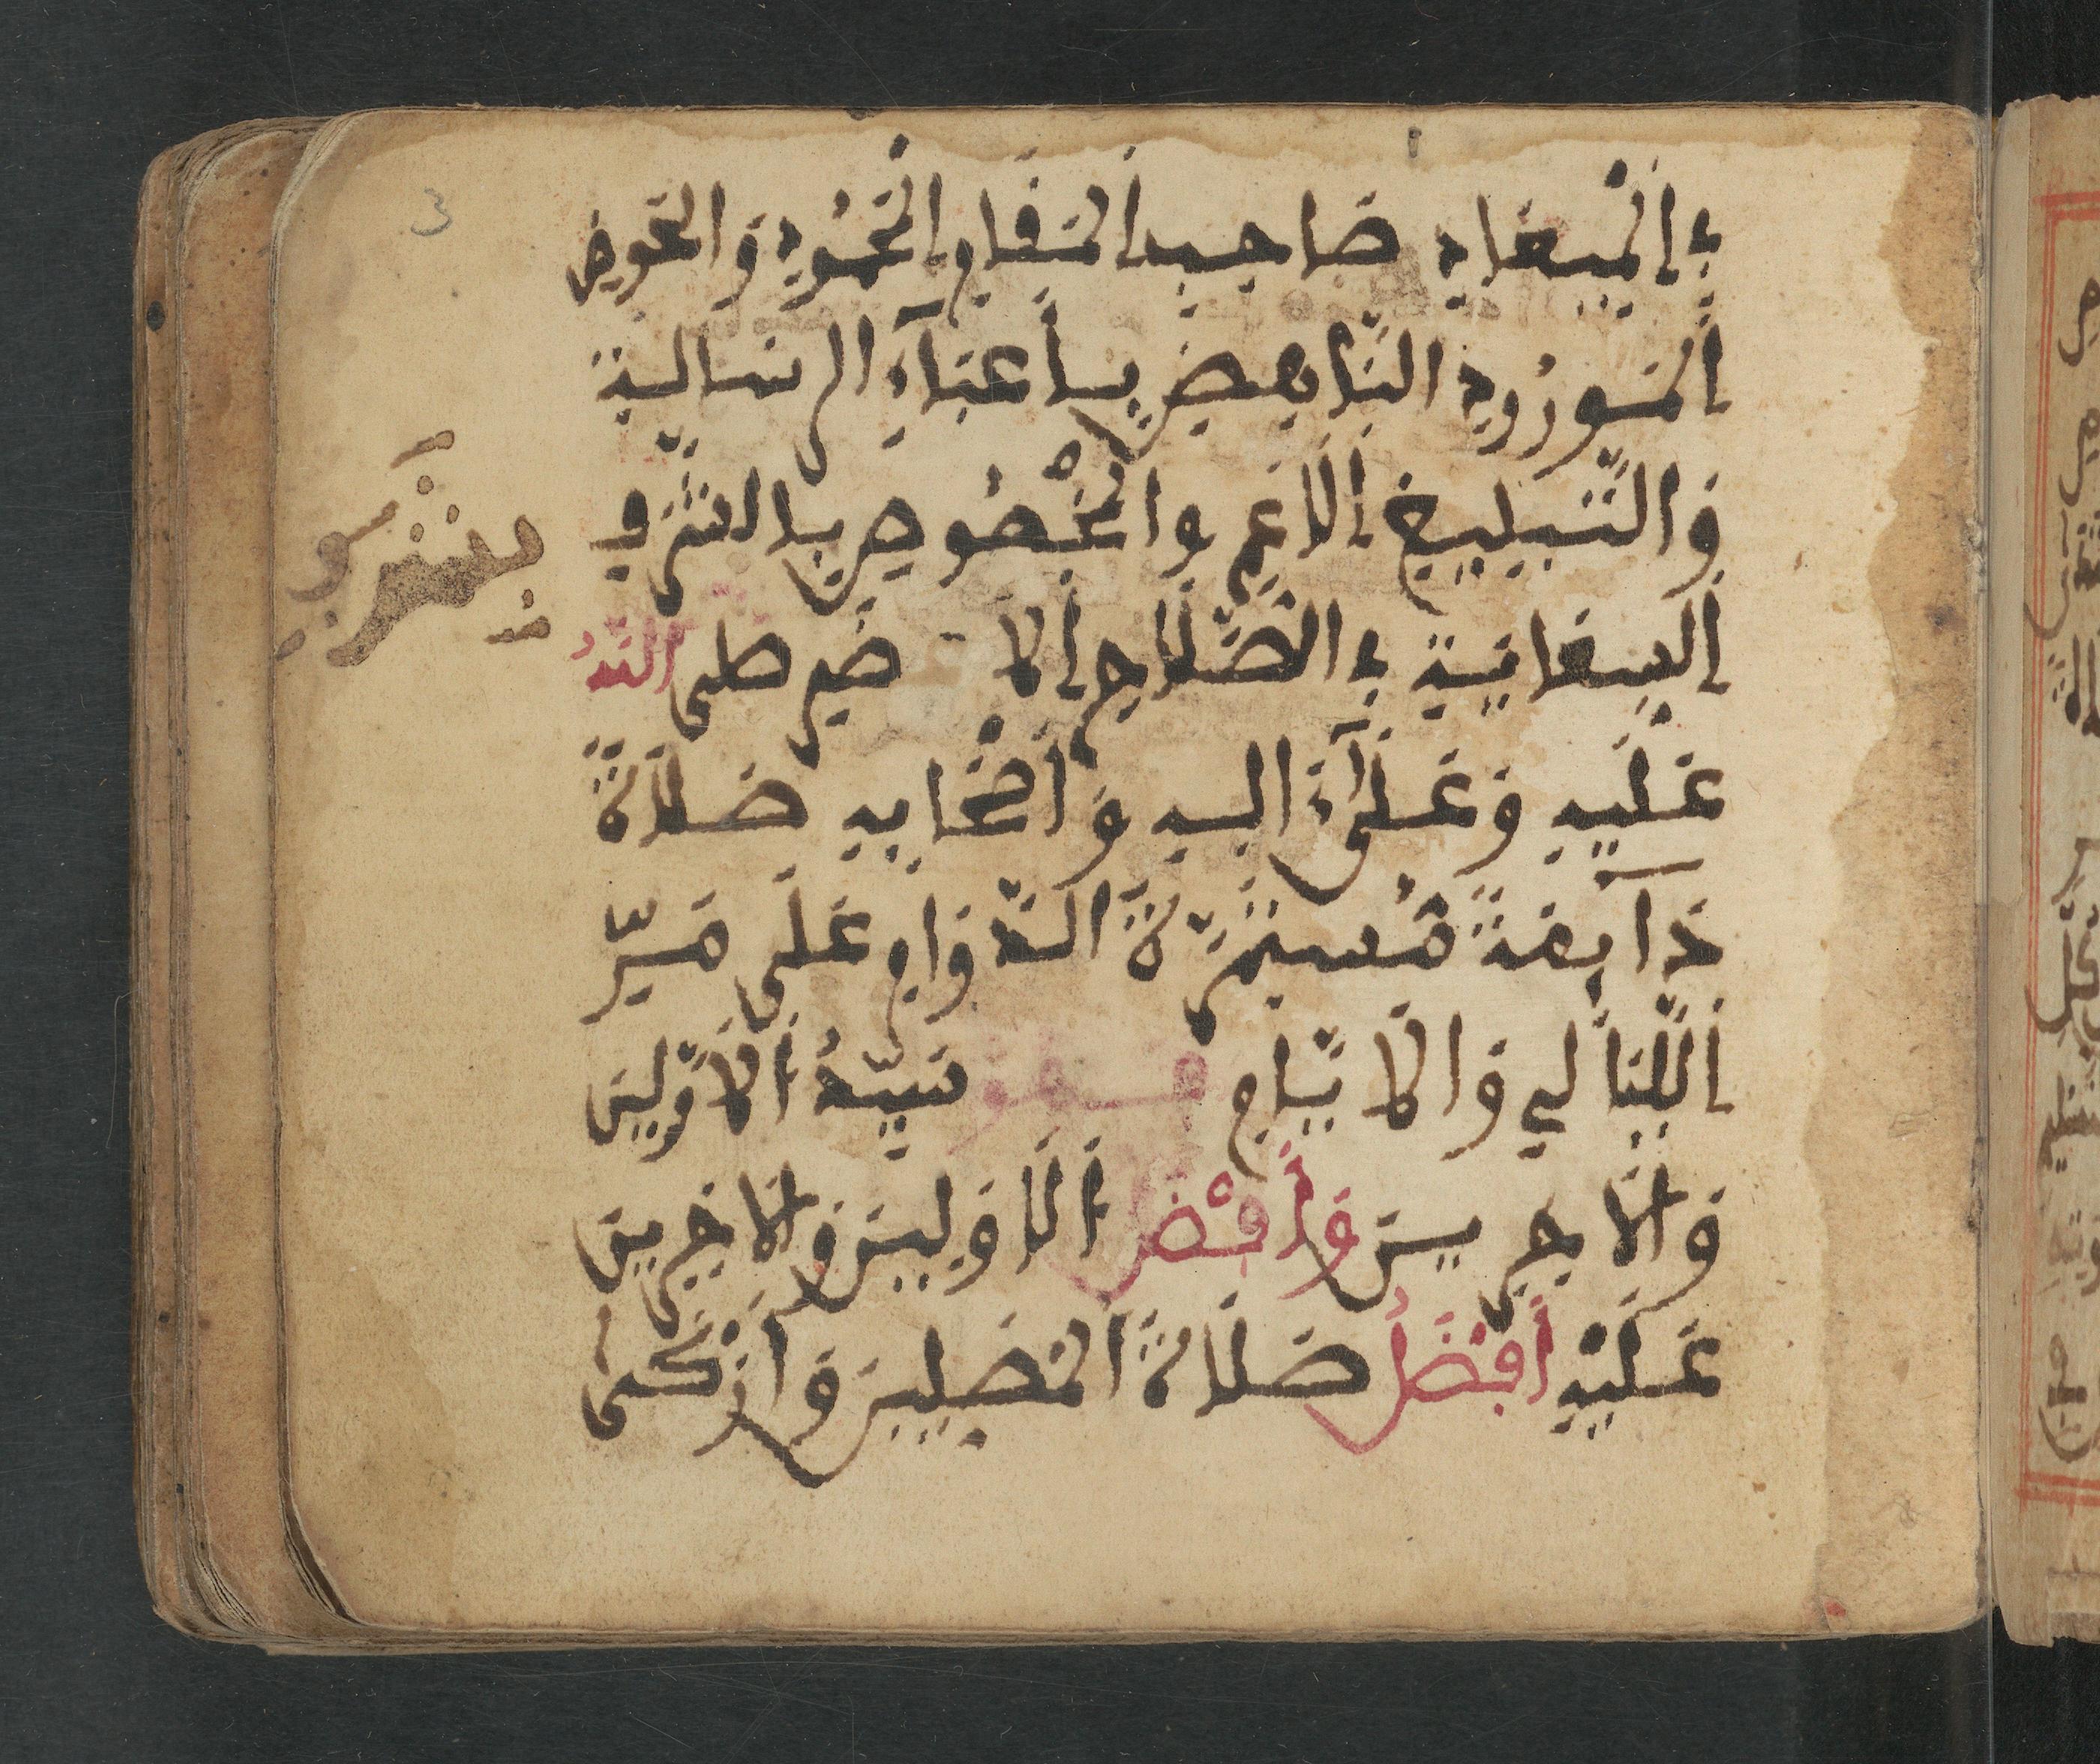 فِے اِ۬لْمِيعَادِ صَاحِبِ اِ۬لْمَقَامِ اِ۬لْمَحْمُودِ وَالْحَوْضِ
اِ۬لْمَوْرُودِ النَّاهِضِ بِأَعْبَآءِ الرِّسَالَةِ
وَالتَّبْلِيغِ اِ۬لَاعَمِّ وَالْمَخْصُوصِ بِالشَّرَفِ
اِ۬لسِّعَايَةِ فِے الصَّلَاحِ اِ۬لَا ضَمِ صَلَّى اللَّهُ
عَلَيْهِ وَعَلَىٰٓ ءَالِهِ وَأَصْحَابِهِ صَلَاةً
دَآئِمَةً مُسْتَمِرَّةَ الدَّوَامِ عَلَى مَرِّ
اِ۬للَّيَالِي وَالَايَّامِ سَيِّدُ اُ۬لَاوَّلِينَ
وَالَاخِرِينَ وَأَفْضَلُ اُ۬لَاوَّلِينَ وَالَاخِرِينَ
عَلَيْهِ أَفْضَلُ صَلَاةِ اِ۬لْمُصَلِّينَ وَأَزْكَى
3